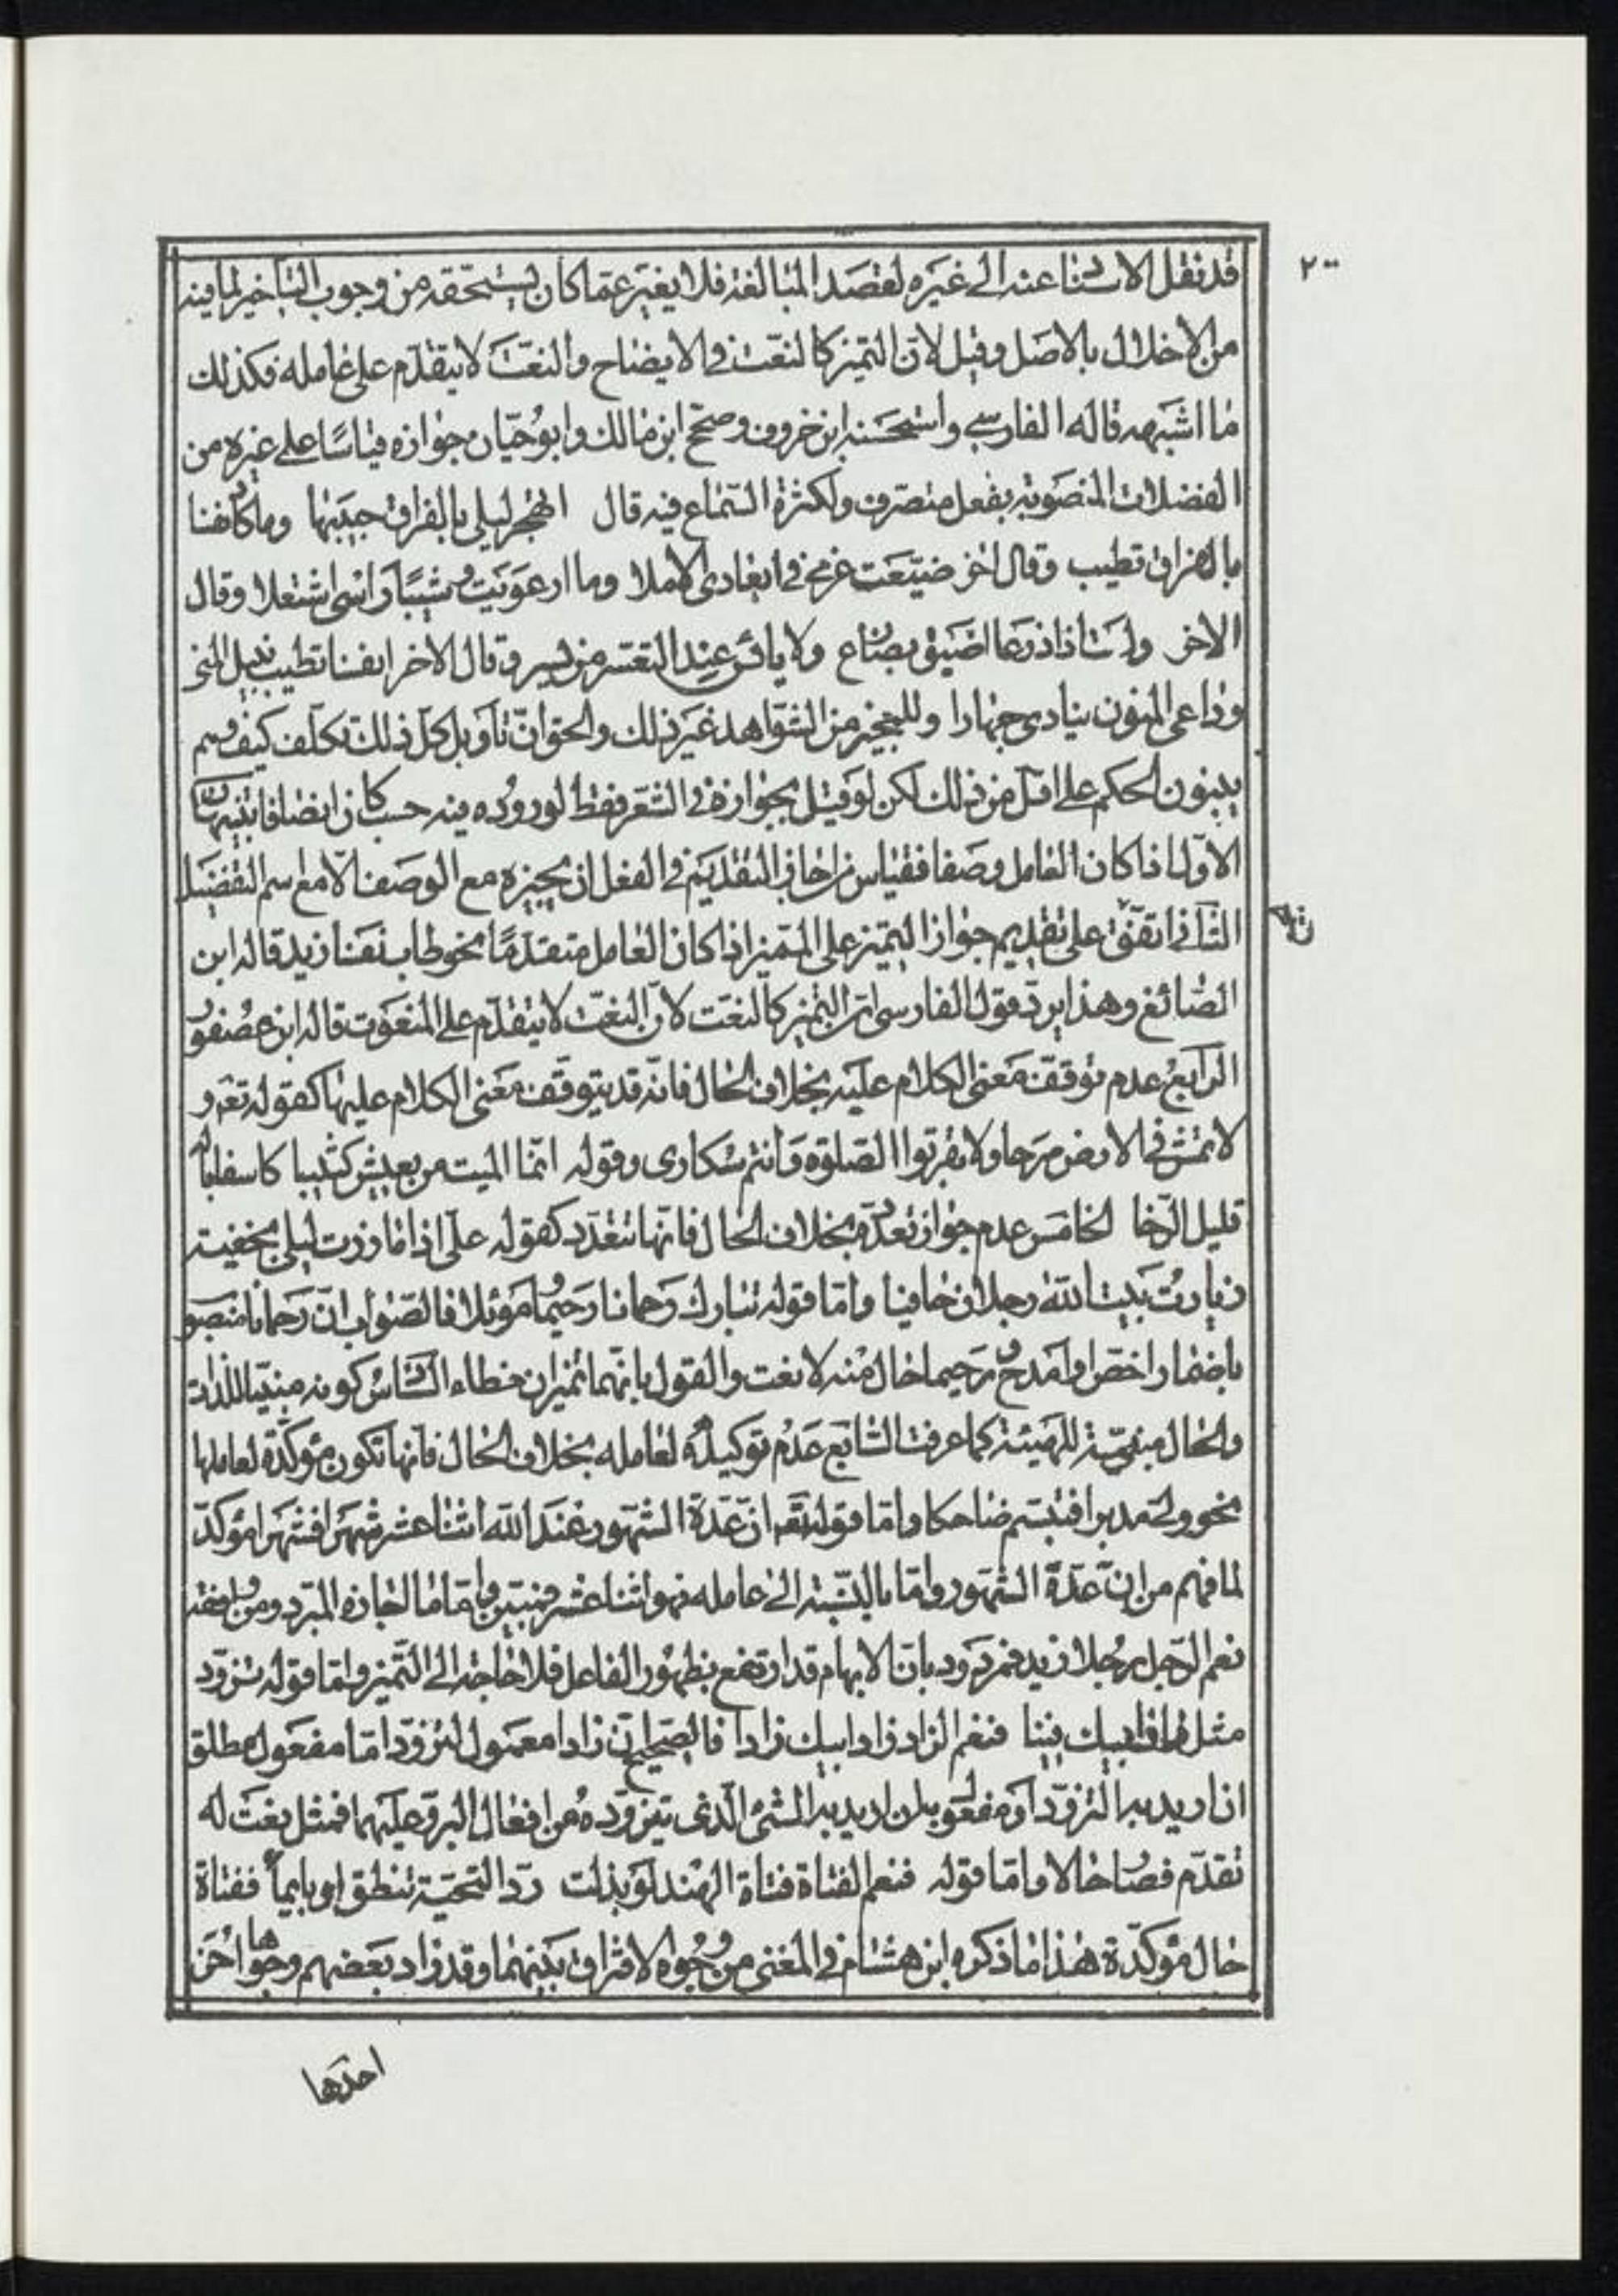 ٢٠٠
قد نقل الاسناد عنه الى غيره لقصد المبالغة فلا يغير عما كان يستحقه من وجوب التأخير لما فيه
من الاخلال بالاصل وقيل لان التميز كالنعت في الايضاح والنعت لا يتقدم على عامله فكذلك
ما اشبهه قاله الفارسي واستحسنه ابن خروف وصحح ابن مالك وابو حيان جوازه قياسًا على غيره من
الفضلات المنصوبة بفعل متصرف ولكثرة السماع فيه قال اتهجر ليلى بالفراق حبيبها وما كان نفسا
بالفراق تطيب وقال اخر ضيعت حزمي في ابعادي الاملا وما ارعويت وشيبًا رأسي اشتعلا وقال
الاخر ولست اذا ذرعا اضيق بضارع ولا يائس عند التعسر من يسر وقال الاخر انفسا تطيب بنيل المنى
وداعى المنون ينادى جهارا وللمجيز من الشواهد غير ذلك والحق ان تأويل كل ذلك تكلف كيف وهم
يبنون الحكم على اقل من ذلك لكن لو قيل بجوازه في الشعر فقط لوروده فيه حسب كان انصافا تنبيهات
الاول اذا كان العامل وصفا فقياس من اجاز التقديم في الفعل ان يجيزه مع الوصف الا مع اسم التفضيل
الثانى اتفق على تقديم جواز التميز على المميز اذا كان العامل متقدمًا نحو طاب نفسا زيد قاله ابن
الصائغ وهذا يرد قول الفارسى ان التميز كالنعت لان النعت لا يتقدم على المنعوت قاله ابن عصفور
الرابع عدم توقف معنى الكلام عليه بخلاف الحال فانه قد يتوقف معنى الكلام عليها كقوله تعه و
لا تمش في الارض مرحا ولا تقربوا الصلوة وانتم سكارى وقوله انما الميت من يعيش كئيبا كاسفا باله
قليل الرخا الخامس عدم جواز تعدده بخلاف الحال فانها تتعدد كقوله على اذا ما زرت ليلى بخفية
زيارت بيت الله رجلان حافيا واما قوله تبارك رحمانا رحيما وموئلا فالصواب ان رحمانا منصوب
باضمار اخص او امدح ورحيما حال منه لا نعت والقول بانهما تميزان خطاء السادس كونه مبنيا للذات
والحال مبنية للهيئة كما عرفت السابع عدم توكيده لعامله بخلاف الحال فانها تكون مؤكدة لعاملها
نحو ولى مدبرا فتبسم ضاحكا واما قوله تعه ان عدة الشهور عند الله اثنا عشر شهرا فشهرا مؤكد
لما فهم من ان عدة الشهور واما بالنسبة الى عامله فهو اثنا عشر فمبين واما ما اجازه المبرد ومن وافقه
نعم الرجل رجلا زيد فمردود بان الابهام قد ارتفع بظهور الفاعل فلا حاجة الى التميز واما قوله تزود
مثل زاد ابيك فينا فنعم الزاد زاد ابيك زادا فالصحيح ان زادا معمول لتزود اما مفعول مطلق
ان اريد به التزود او مفعول به ان اريد به الشئ الذى تيزوده من افعال البر وعليهما فمثل نعت له
تقدم فصار حالا واما قوله فنعم الفتاة فتاة الهند لو بذلت رد التحية تنطق او بايماء ففتاة
حال مؤكدة هذا ما ذكره ابن هشام في المغنى من وجوه الافتراق بينهما وقد زاد بعضهم وجوها اخر
احدها